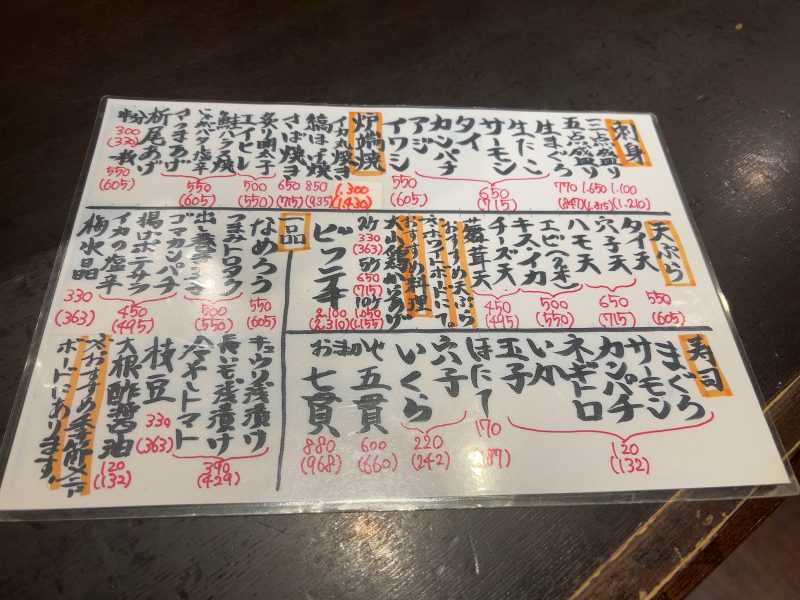 刺身
三点盛り
1.100
(1.210)
五点盛り
1.650
(1.815)
生まぐろ
770
(847)
生たこ
サーモン
タイ
カンパチ
650
(715)
アジ
イワシ
550
(605)
炉端焼
イカ丸焼き
1.300
(1.430)
縞ほっけ焼
850
(935)
さば焼き
650
(715)
炙り明太子
エイヒレ
500
(550)
鮭ハラス焼
じゃがバタ塩辛
さつまあげ
550
(605)
栃尾あげ
一枚
550
(605)
半分
300
(330)
天ぷら
タイ天
550
(605)
穴子天
ハモ天
650
(715)
エビ(2本)
キスイカ
500
(550)
チーズ天
舞茸天
450
(495)
おすすめ天ぷら
ホワイトボードにて。
おすすめ料理
大山鶏からあげ
2ケ
330
(363)
5ケ
650
(715)
10ケ
1.050
(1.155)
2.100
(2.310)
一品
なめろう
550
(605)
つまみトロタク
出し巻き玉子
500
(550)
ゴマカンパチ
揚げポテサラ
イカの塩辛
450
(495)
梅水晶
330
(363)
キュウリ浅漬け
長芋浅漬け
冷やしトマト
390
(429)
枝豆
330
(363)
大根酢醤油
120
(132)
ボードにあります。
寿司
まぐろ
サーモン
カンパチ
ネギトロ
いか
玉子
120
(132)
ほたて
170
穴子
いくら
220
(242)
おまかせ
五貫
600
(660)
七貫
880
(968)